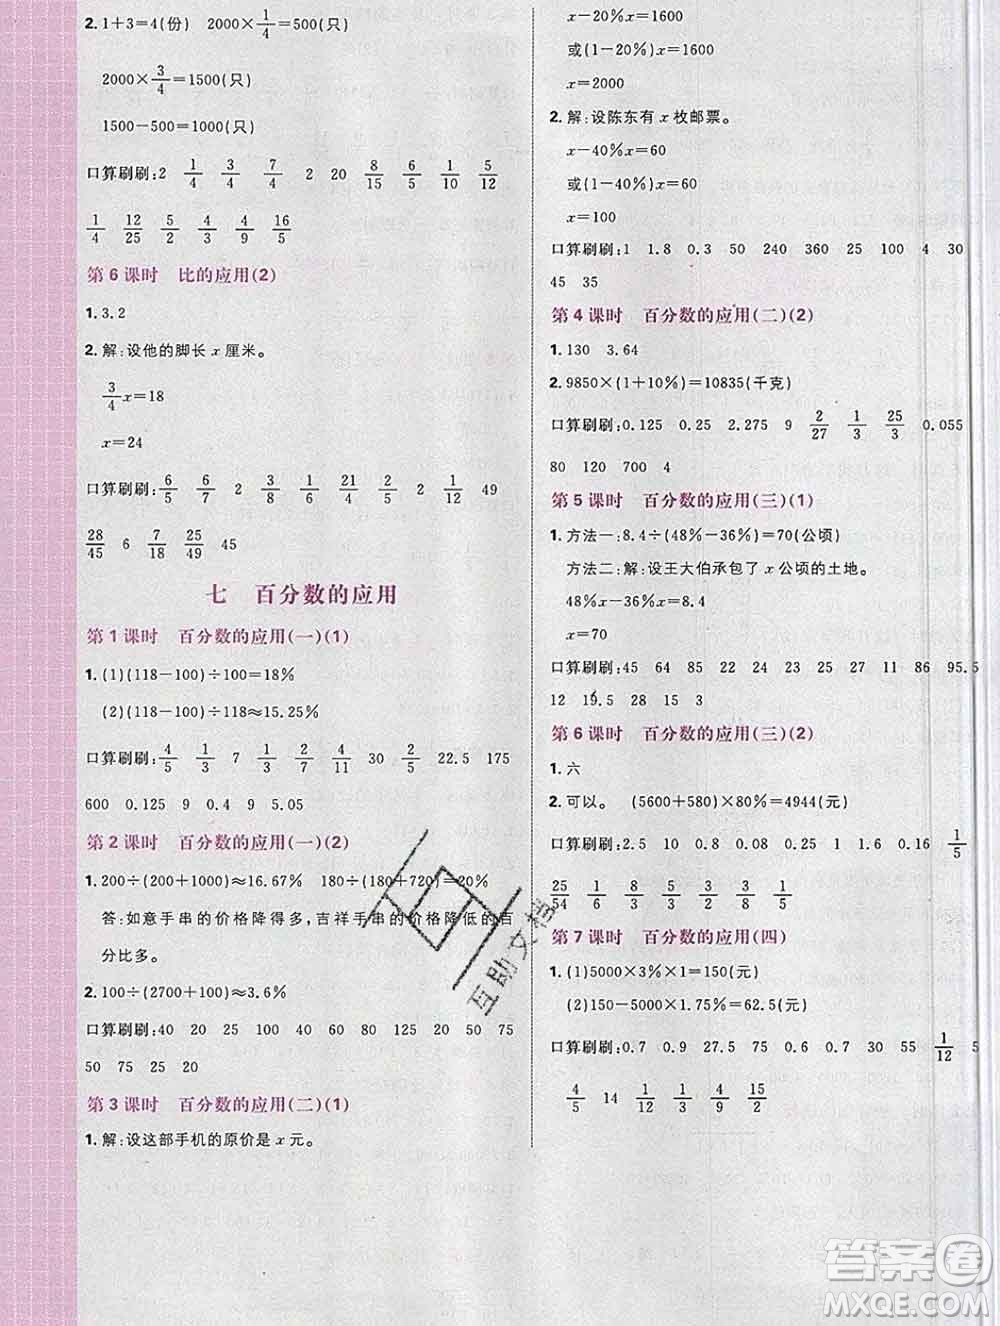 2. 1+3=4(份) 2000×1/4=500(只)
2000×3/4=1500(只)
1500-500=1000(只)
口算刷刷:2 1/4 3/4 7/4 2 20 8/15 6/5 1/4 5/12
1/4 12/25 5/2 1/8 16/25
第 6 课时 比的应用(2)
1. 3.2
2. 解:设他的脚长 x 厘米。
3/4x=18
x=24
口算刷刷:6/5 6/7 2 3/8 1/6 21/4 2/5 2 1/12 49
28/45 6 7/18 25/49 45
七 百分数的应用
第 1 课时 百分数的应用(一)(1)
1. (1)(118-100)÷100=18%
(2)(118-100)÷118≈15.25%
口算刷刷:4/5 1/3 7 1/3 2/7 4/11 30 2/5 22.5 175
600 0.125 9 0.4 9 5.05
第 2 课时 百分数的应用(一)(2)
1. 200÷(200+1000)≈16.67% 180÷(180+720)=20%
答:如意手串的价格降得多,吉祥手串的价格降低的百
分比多。
2. 100÷(2700+100)≈3.6%
口算刷刷:40 20 25 100 20 25 20 50 75
50 75 25 20
第 3 课时 百分数的应用(二)(1)
1. 解:设这部手机的原价是 x 元。
x-20%x=1600
或(1-20%)x=1600
x=2000
2. 解:设陈东有 x 枚邮票。
x-40%x=60
或(1-40%)x=60
x=100
口算刷刷:1 1.8 0.3 50 240 360 25 100 4 30
45 35
第 4 课时 百分数的应用(二)(2)
1. 130 3.64
2. 9850×(1+10%)=10835(千克)
口算刷刷:0.125 0.25 2.275 9 2/27 1/3 25/3 0.055
80 120 700 4
第 5 课时 百分数的应用(三)(1)
1. 方法一:8.4÷(48%-36%)=70(公顷)
方法二:解:设王大伯承包了 x 公顷的土地。
48%x-36%x=8.4
x=70
口算刷刷:45 64 85 22 24 23 27 11 86 95.5
12 19.5 28 15 3
第 6 课时 百分数的应用(三)(2)
1. 六
2. 可以。 (5600+580)×80%=4944(元)
口算刷刷:2.5 10 0.8 0.25 1 1.6 0.16 1/5
25/54 1/6 8/9 3/8 1/2 1/9
第 7 课时 百分数的应用(四)
1. (1)5000×3%×1=150(元)
(2)150-5000×1.75%=62.5(元)
口算刷刷:0.7 0.9 27.5 75 0.6 0.7 30 55 1/12 5
4/5 14 1/12 4/7 5/14 15/2
互助文档
答案圈
MXQE.COM